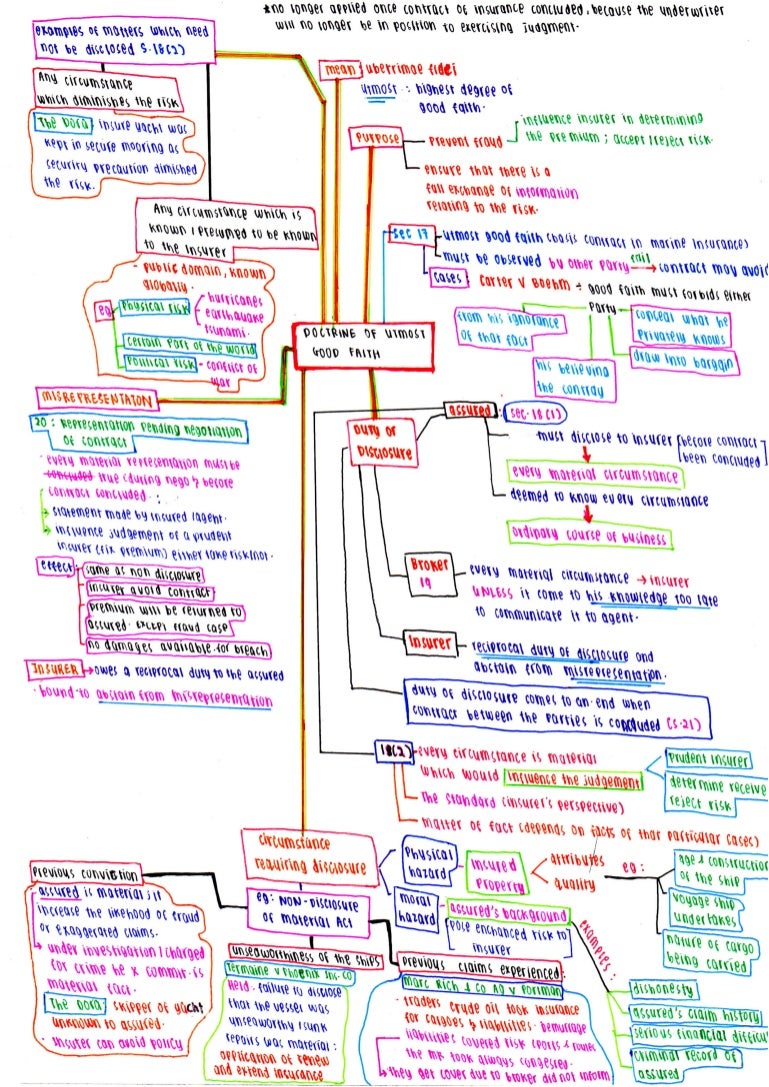 *no longer applied once contract of insurance concluded, because the underwriter
will no longer be in position to exercising judgment.
examples of matters which need
not be disclosed S.18(2)
Any circumstance
which diminishes the risk
The Dora: insure yacht was
kept in secure mooring as
security precaution dimished
the risk.
Any circumstance which is
known / presumed to be known
to the insurer
- public domain, known
globally.
eg
Physical risk
hurricanes
earthquake
tsunami.
certain part of the world
Political risk - conflict of
war
mean: uberrimae fidei
utmost : highest degree of
good faith.
Purpose
prevent fraud
influence insurer in determining
the premium ; accept / reject risk.
ensure that there is a
full exchange of information
relating to the risk.
sec 17
utmost good faith (basis contract in marine insurance)
must be observed by other party fail → contract may avoid
cases: Carter v Boehm ÷ good faith must forbids either
Party
from his ignorance
of that fact
his believing
the contray
conceal what he
privately knows
draw into bargain
DOCTRINE OF UTMOST
GOOD FAITH
MISREPRESENTATION
20 : Representation pending negotiation
of contract
- every material representation must be
concluded true (during nego & before
contract concluded. :
statement made by insured / agent.
influence judgement of a prudent
insurer (fix premium) either take risk / not.
effect
same as non disclosure
insurer avoid contract
premium will be returned to
assured. EXCEPT fraud case
no damages available for breach
INSURER → owes a reciprocal duty to the assured
- bound to abstain from misrepresentation
DUTY OF
DISCLOSURE
assured: sec.18(1)
must disclose to insurer [before contract
been concluded]
every material circumstance
deemed to know every circumstance
ordinary course of business
Broker
19
every material circumstance → insurer
UNLESS it come to his knowledge too late
to communicate it to agent.
Insurer
reciprocal duty of disclosure and
abstain from misrepresentation.
duty of disclosure comes to an end when
contract between the parties is concluded (s.21)
18(2)
every circumstance is material
which would influence the judgement
prudent insurer
determine receive
reject risk
The standard (insurer's perspective)
matter of fact (depends on facts of that particular cases)
circumstance
requiring disclosure
Physical
hazard
Insured
Property
attributes
quality
eg:
age & construction
of the ship
voyage ship
undertakes
nature of cargo
being carried
moral
hazard
assured's background
pose enhanced risk to
insurer
examples:
dishonesty
assured's claim history
serious financial
criminal record of
assured
eg: NON-DISCLOSURE
OF MATERIAL ACT
previous conviction
assured is material ; it
increase the likehood of fraud
or exaggerated claims.
under investigation / charged
for crime he x commit. is
material fact.
The Dora : skipper of yacht
unknown to assured.
- insurer can avoid policy
unseaworthiness of the ships
Termaine v Phoenix Ins. Co
Held - failure to disclose
that the vesser was
unseaworthy / sunk
repairs was material :
application of renew
and extend insurance
Previous claims experienced:
Marc Rich & Co AG v Portman
- traders crude oil took insurance
for cargoes & liabilities : demurrage
liabilities covered risk &ports & routes
the MR took always congested.
they get cover due to broker did not inform